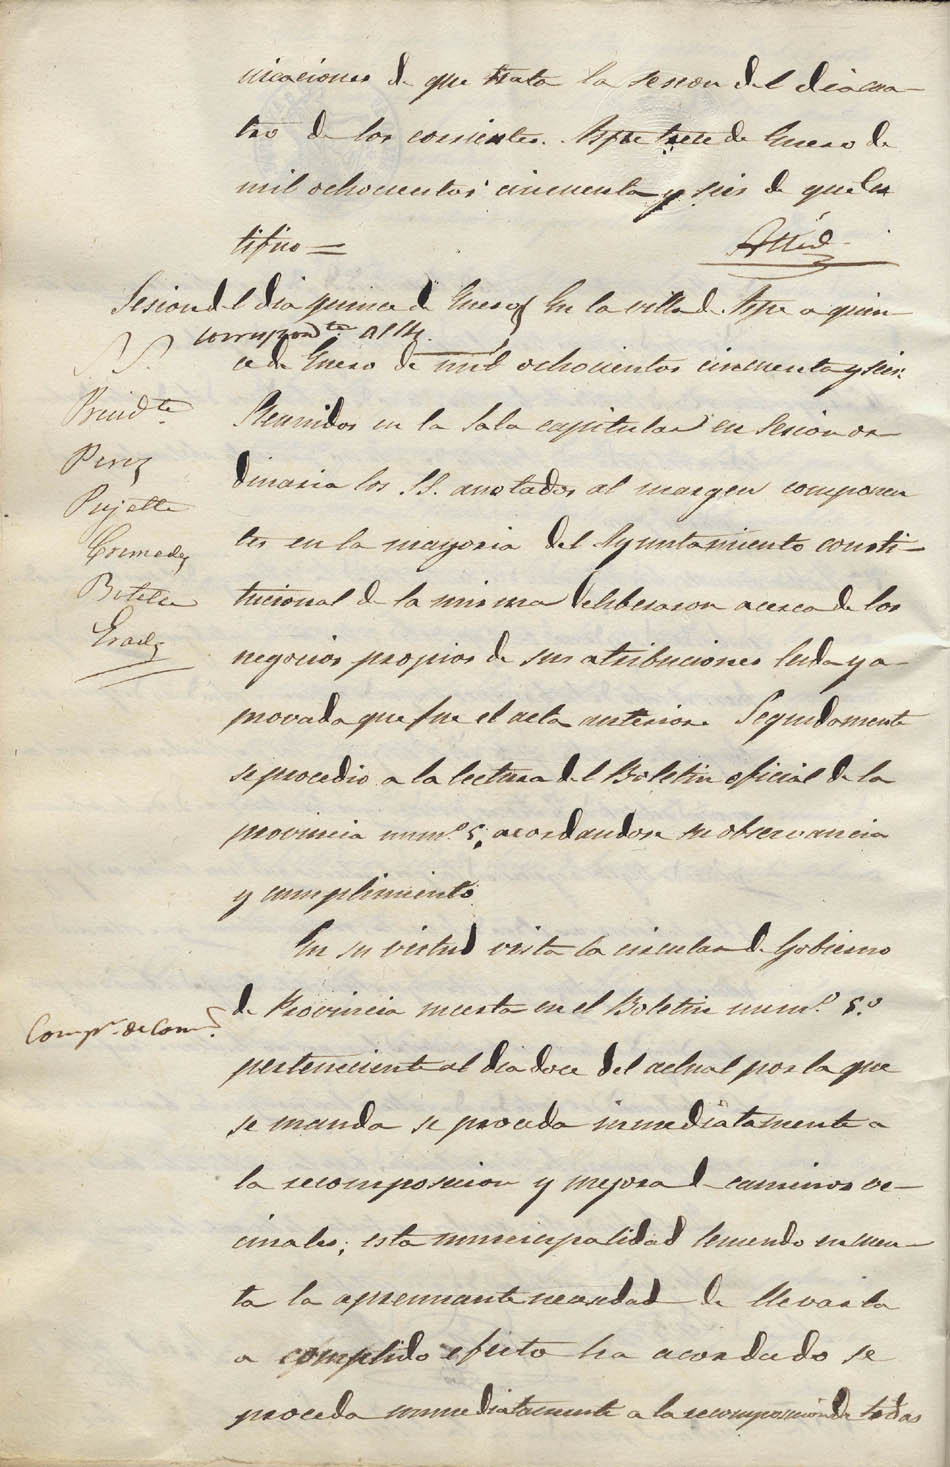 nicaciones de que trata la sesion del dia cua-
tro de los corrientes. Aspe trece de Enero de
mil ochocientos cincuenta y seis de que cer
tifico =
Sesion del dia quince de Enero En la villa de Aspe a quin-
correspond.te al 14.
SS.
ce de Enero de mil ochocientos cincuenta y seis:
Presid.te
Reunidos en la Sala capitular en Sesion or-
Perez
dinaria los SS. anotados al margen componen
Pujalte
tes en la mayoria del Ayuntamiento consti-
Cremades
Botella
tucional de la misma deliberaron acerca de los
negocios propios de sus atribuciones leida y a-
provada que fue el acta anterior. Seguidamente
se procedio a la lectura del Boletin oficial de la
provincia num.o 5, acordandose su observancia
y cumplimiento
En su virtud vista la circular de Gobierno
de Provincia incerta en el Boletin num.o 5.o
Comp.n de Cam.s
perteneciente al dia doce del actual por la que
se manda se proceda inmediatamente a
la recomposicion y mejora de caminos ve-
cinales; esta municipalidad teniendo en cuen-
ta la apremiante necesidad de llevarla
a cumplido efecto ha acordado se
proceda inmediatamente a la recomposicion de todos